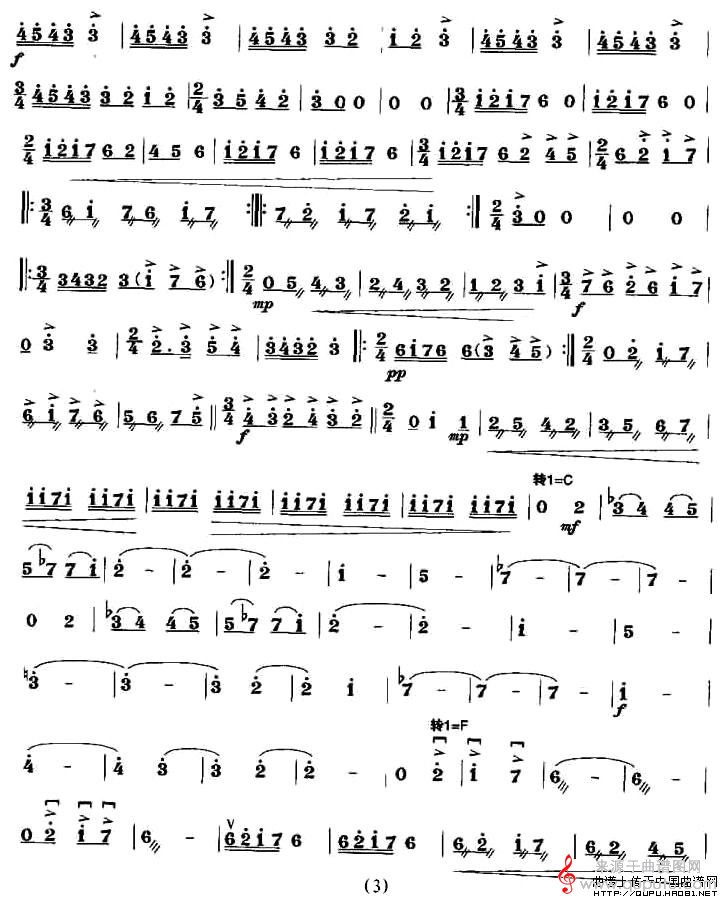 4543 3 | 4543 3 | 4543 3 2 | 1 2 3 | 4543 3 | 4543 3 |
f
3/4 4543 3 2 1 2 | 2/4 3 5 4 2 | 3 0 0 | 0 0 | 3/4 1217 6 0 | 1217 6 0 |
2/4 1217 6 2 | 4 5 6 | 1217 6 | 1217 6 | 3/4 1217 6 2 4 5 | 2/4 6 2 1 7 |
‖: 3/4 6 1 7 6 1 7 :‖: 7 2 1 7 2 1 :‖ 2/4 3 0 0 | 0 0 |
‖: 3/4 3432 3 (1 7 6) :‖ 2/4 0 5 4 3 | 2 4 3 2 | 1 2 3 1 | 3/4 7 6 2 6 1 7 |
mp f
0 3 3 | 2/4 2. 3 5 4 | 3432 3 ‖: 2/4 6176 6 (3 4 5) :‖ 2/4 0 2 1 7 |
pp
6 1 7 6 | 5 6 7 5 ‖ 3/4 4 3 2 4 3 2 ‖ 2/4 0 1 1 | 2 5 4 2 | 3 5 6 7 |
f mp
转1=C
1171 1171 | 1171 1171 | 1171 1171 | 1171 1171 | 1171 1171 | 0 2 | ♭3 4 4 5 |
mf
5 ♭7 7 1 | 2 - | 2 - | 2 - | 1 - | 5 - | ♭7 - | 7 - | 7 - |
0 2 | ♭3 4 4 5 | 5 ♭7 7 1 | 2 - | 2 - | 1 - | 5 - |
♮3 - | 3 - | 3 2 | 2 1 | ♭7 - | 7 - | 7 - | 1 - |
f
转1=F
4 - | 4 3 | 3 2 | 2 - | 0 2 | 1 7 | 6 - | 6 - |
0 2 1 7 | 6 - | 6217 6 | 6217 6 | 6 2 1 7 | 6 2 4 5 |
(3)
来源于曲谱图网